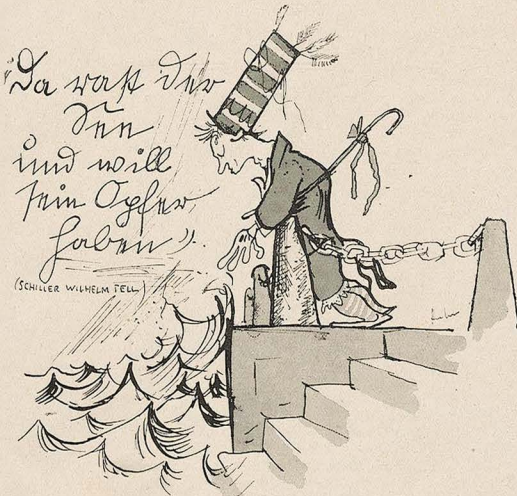 "Da rast der
See
und will
sein Opfer
haben".
(SCHILLER WILHELM TELL)